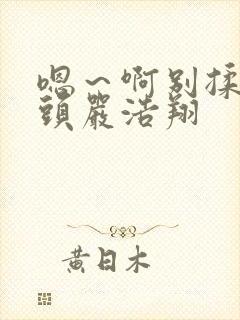 嗯～啊别揉
頭嚴浩翔
黄日木